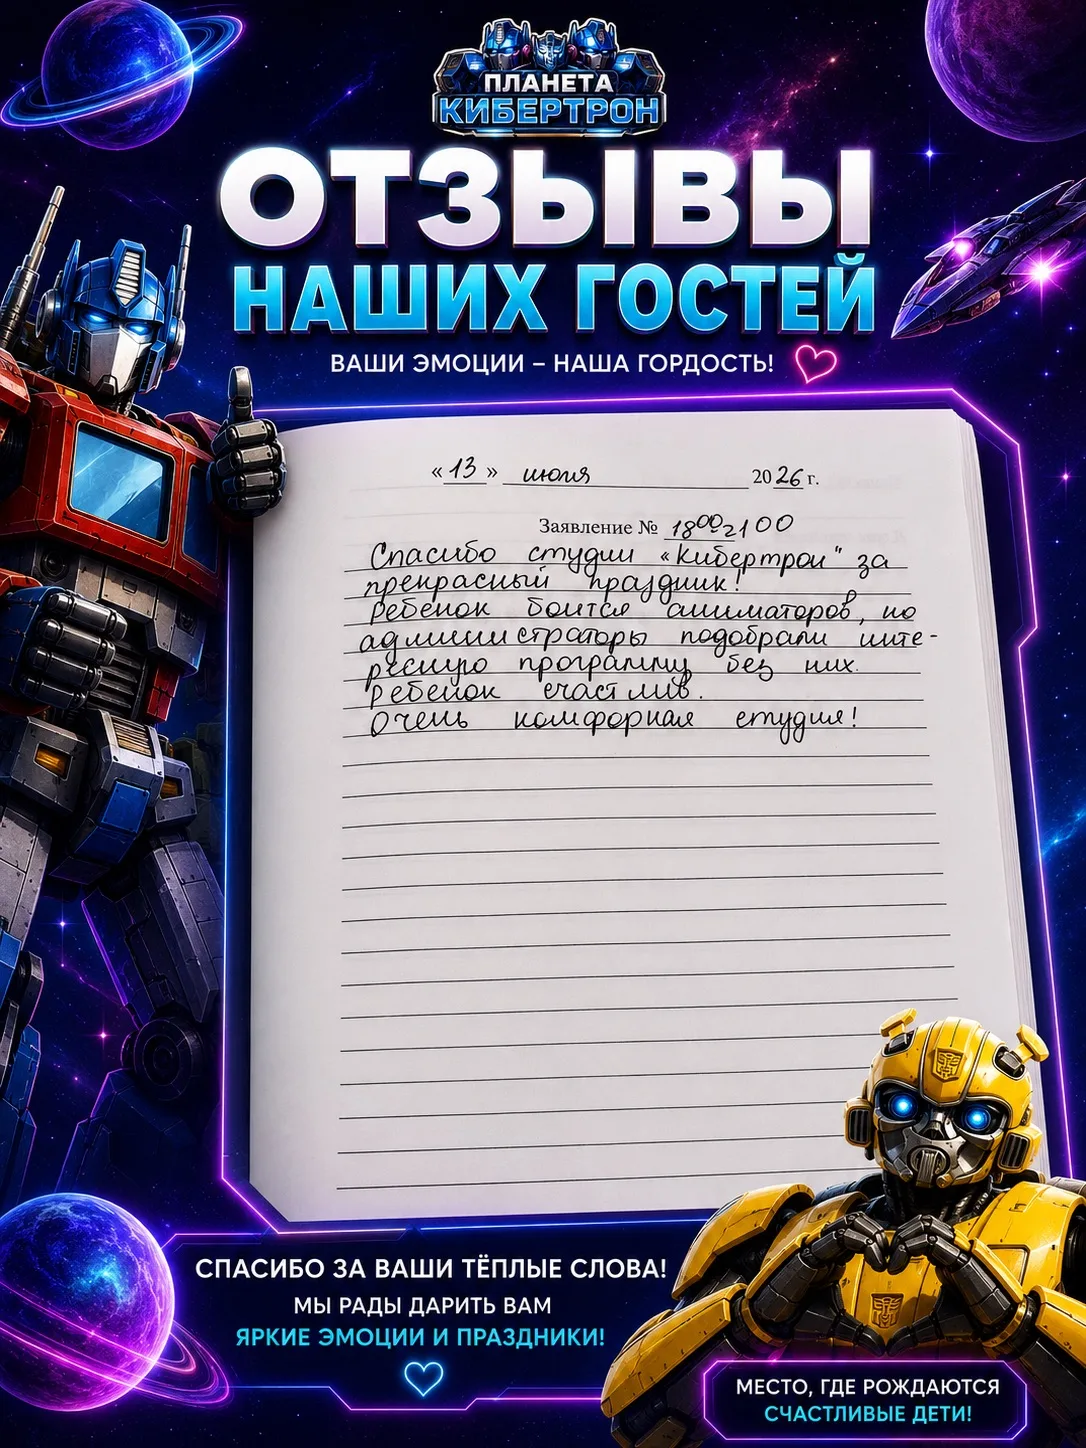 ПЛАНЕТА
КИБЕРТРОН
ОТЗЫВЫ
НАШИХ ГОСТЕЙ
ВАШИ ЭМОЦИИ – НАША ГОРДОСТЬ!
«13» июля 2026 г.
Заявление № 18⁰⁰-2100
Спасибо студии «Кибертрон" за
прекрасный праздник!
Ребёнок боится аниматоров, но
администраторы подобрали инте-
ресную программу без них.
Ребёнок счастлив.
Очень комфорная студия!
СПАСИБО ЗА ВАШИ ТЁПЛЫЕ СЛОВА!
МЫ РАДЫ ДАРИТЬ ВАМ
ЯРКИЕ ЭМОЦИИ И ПРАЗДНИКИ!
МЕСТО, ГДЕ РОЖДАЮТСЯ
СЧАСТЛИВЫЕ ДЕТИ!